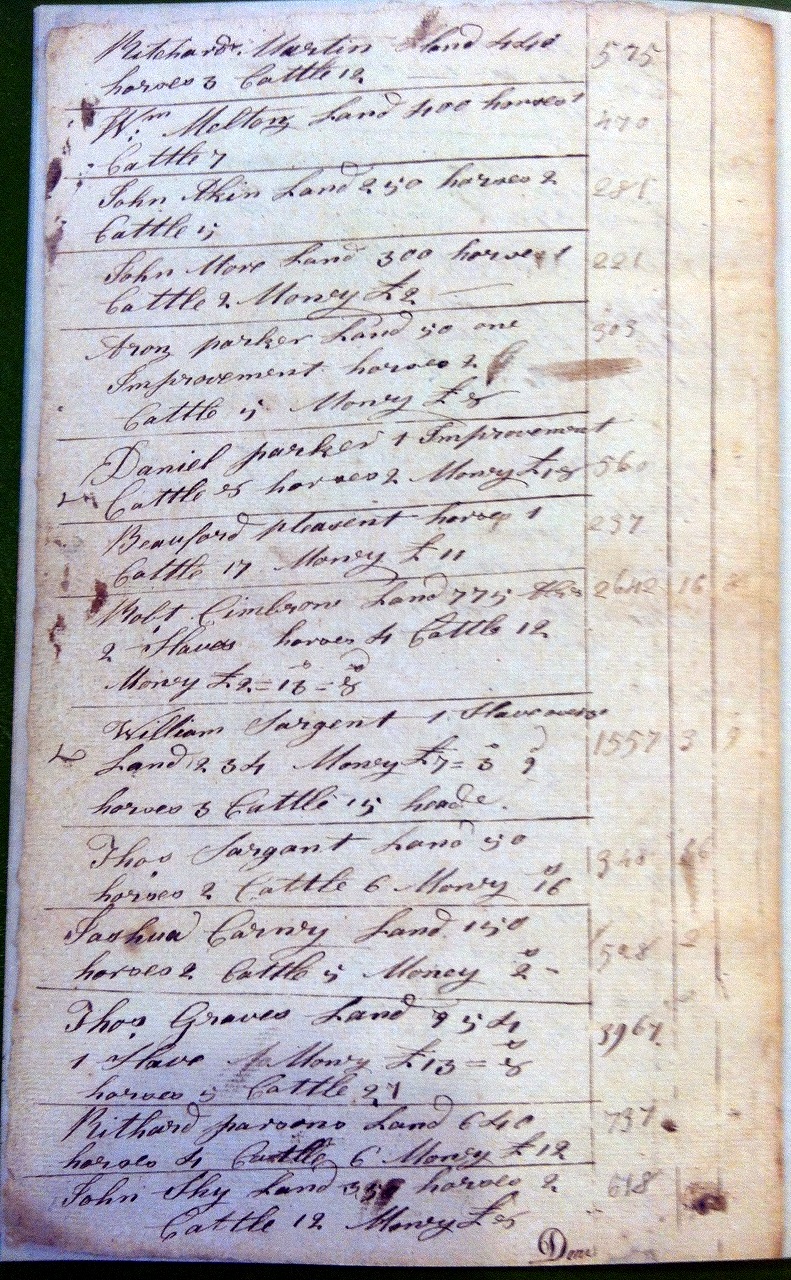 Ritchard Martin Land 440 575
horses 3 Cattle 12
Wm Melton Land 400 horses 1 470
Cattle 7
John Akin Land 250 horses 2 281
Cattle 5
John More Land 300 horses 1 221
Cattle 2 Money £2
Aron parker Land 50 one 303
Improvement horses 2
Cattle 5 Money £8
Daniel parker 1 Improvement
Cattle 8 horses 2 Money £18 560
Beauford pleasent horses 1 237
Cattle 17 Money £11
Robt Cimbrone Land 775 2642 16
2 Slaves horses 4 Cattle 12
Money £2=18=8
William Sargent 1 Slave
Land 234 Money £7=3 9 1557 3 9
horses 3 Cattle 15 heade.
Thos Sargant Land 50 348 16
horses 2 Cattle 6 Money 16
Joshua Carney Land 150 528 2
horses 2 Cattle 5 Money 2-
Thos Graves Land 954 3967
1 Slave Money £13=8
horses 5 Cattle 27
Rithard parsons Land 640 737
horses 4 Cattle 6 Money £12
John Shy Land 350 horses 2 618
Cattle 12 Money £8